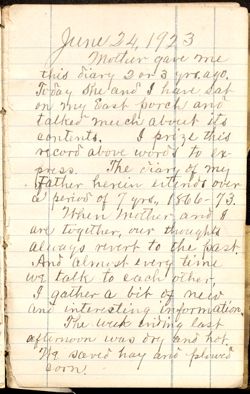 June 24, 1923
Mother gave me
this diary 2 or 3 yrs. ago.
Today she and I have sat
on my East porch and
talked much about its
contents. I prize this
record above words to ex-
press. The diary of my
Father herein extends over
a period of 7 yrs., 1866-73.
When Mother and I
are together, our thoughts
always revert to the past.
And almost every time
we talk to each other,
I gather a bit of new
and interesting information.
The week ending last
afternoon was dry and hot.
We saved hay and plowed
corn.